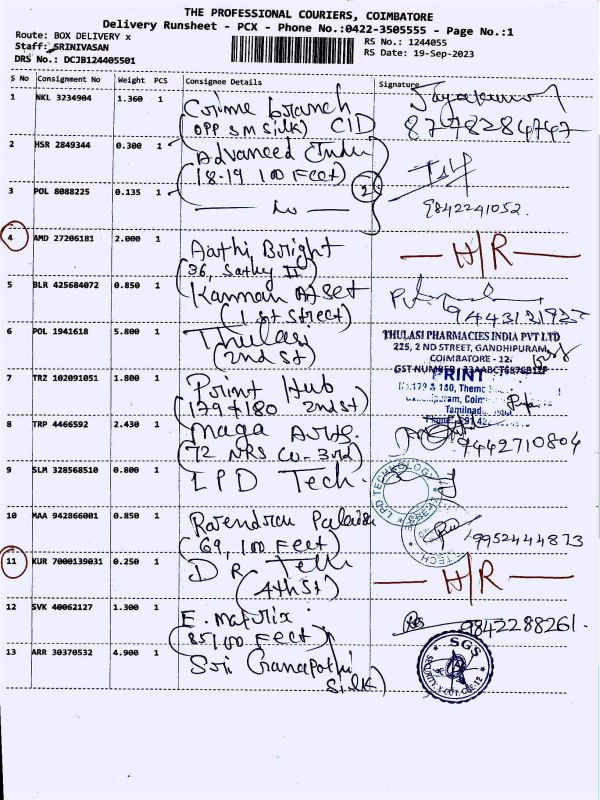 THE PROFESSIONAL COURIERS, COIMBATORE
Delivery Runsheet - PCX - Phone No.:0422-3505555 - Page No.:1
Route: BOX DELIVERY x
RS No.: 1244055
Staff: SRINIVASAN
RS Date: 19-Sep-2023
DRS No.: DCJB124405501
S No Consignment No Weight PCS Consignee Details Signature
1 NKL 3234904 1.360 1 Crime branch Jayakumar
(OPP SM Silk) CID 8778284747
2 HSR 2849344 0.300 1 Advanced Indu
(18-19 100 Feet)
3 POL 8088225 0.135 1 2
9842241052
4 AMD 27206181 2.000 1 Aathi Bright H/R
(36, Sathy II)
5 BLR 425684072 0.850 1 Kannan Asset
(1st Street)
6 POL 1941618 5.800 1 Thulasi THULASI PHARMACIES INDIA PVT LTD
(2nd St) 225, 2 ND STREET, GANDHIPURAM,
COIMBATORE - 12.
GST NUMBER
7 TRZ 102091051 1.800 1 Print Hub PRINT
(179 & 180 2nd St) No.179 & 180,
Tamilnadu
8 TRP 4466592 2.430 1 Maga Arts.
(72 NRS Co-3rd) 9442710804
9 SLM 328568510 0.800 1 LPD Tech. LPD TECHNOLOGI
10 MAA 942866001 0.850 1 Ravendran
(69, 100 Feet) 9952444873
TECH
11 KUR 7000139031 0.250 1 D R H/R
(4th St)
12 SVK 40062127 1.300 1 E. matrix
(85/100 Feet) 9842288261.
13 ARR 30370532 4.900 1 Sri Ganapathi SGS
Silk) SECURITY